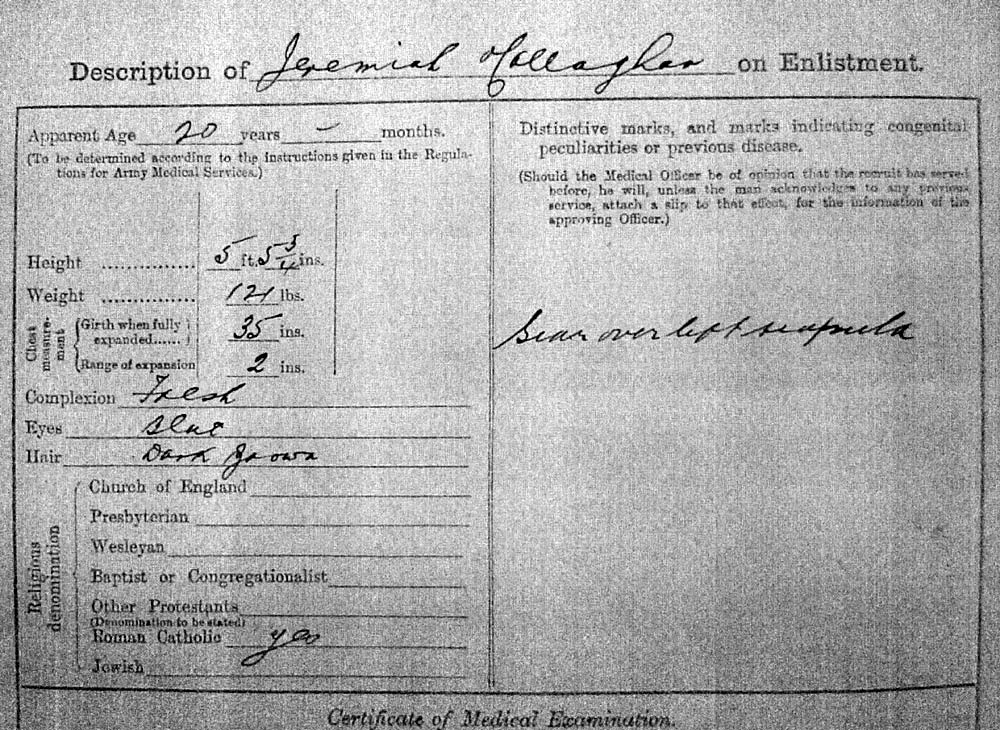 Description of Jeremiah Callaghan on Enlistment.
Apparent Age 20 years – months.
(To be determined according to the instructions given in the Regula-
tions for Army Medical Services.)
Height 5 ft. 5 3/4 ins.
Weight 121 lbs.
Chest measure-ment
Girth when fully expanded...... 35 ins.
Range of expansion 2 ins.
Complexion Fresh
Eyes Blue
Hair Dark Brown
Religious denomination
Church of England
Presbyterian
Wesleyan
Baptist or Congregationalist
Other Protestants
(Denomination to be stated)
Roman Catholic yes
Jewish
Distinctive marks, and marks indicating congenital
peculiarities or previous disease.
(Should the Medical Officer be of opinion that the recruit has served
before, he will, unless the man acknowledges to any previous
service, attach a slip to that effect, for the information of the
approving Officer.)
Scar over left scapula
Certificate of Medical Examination.